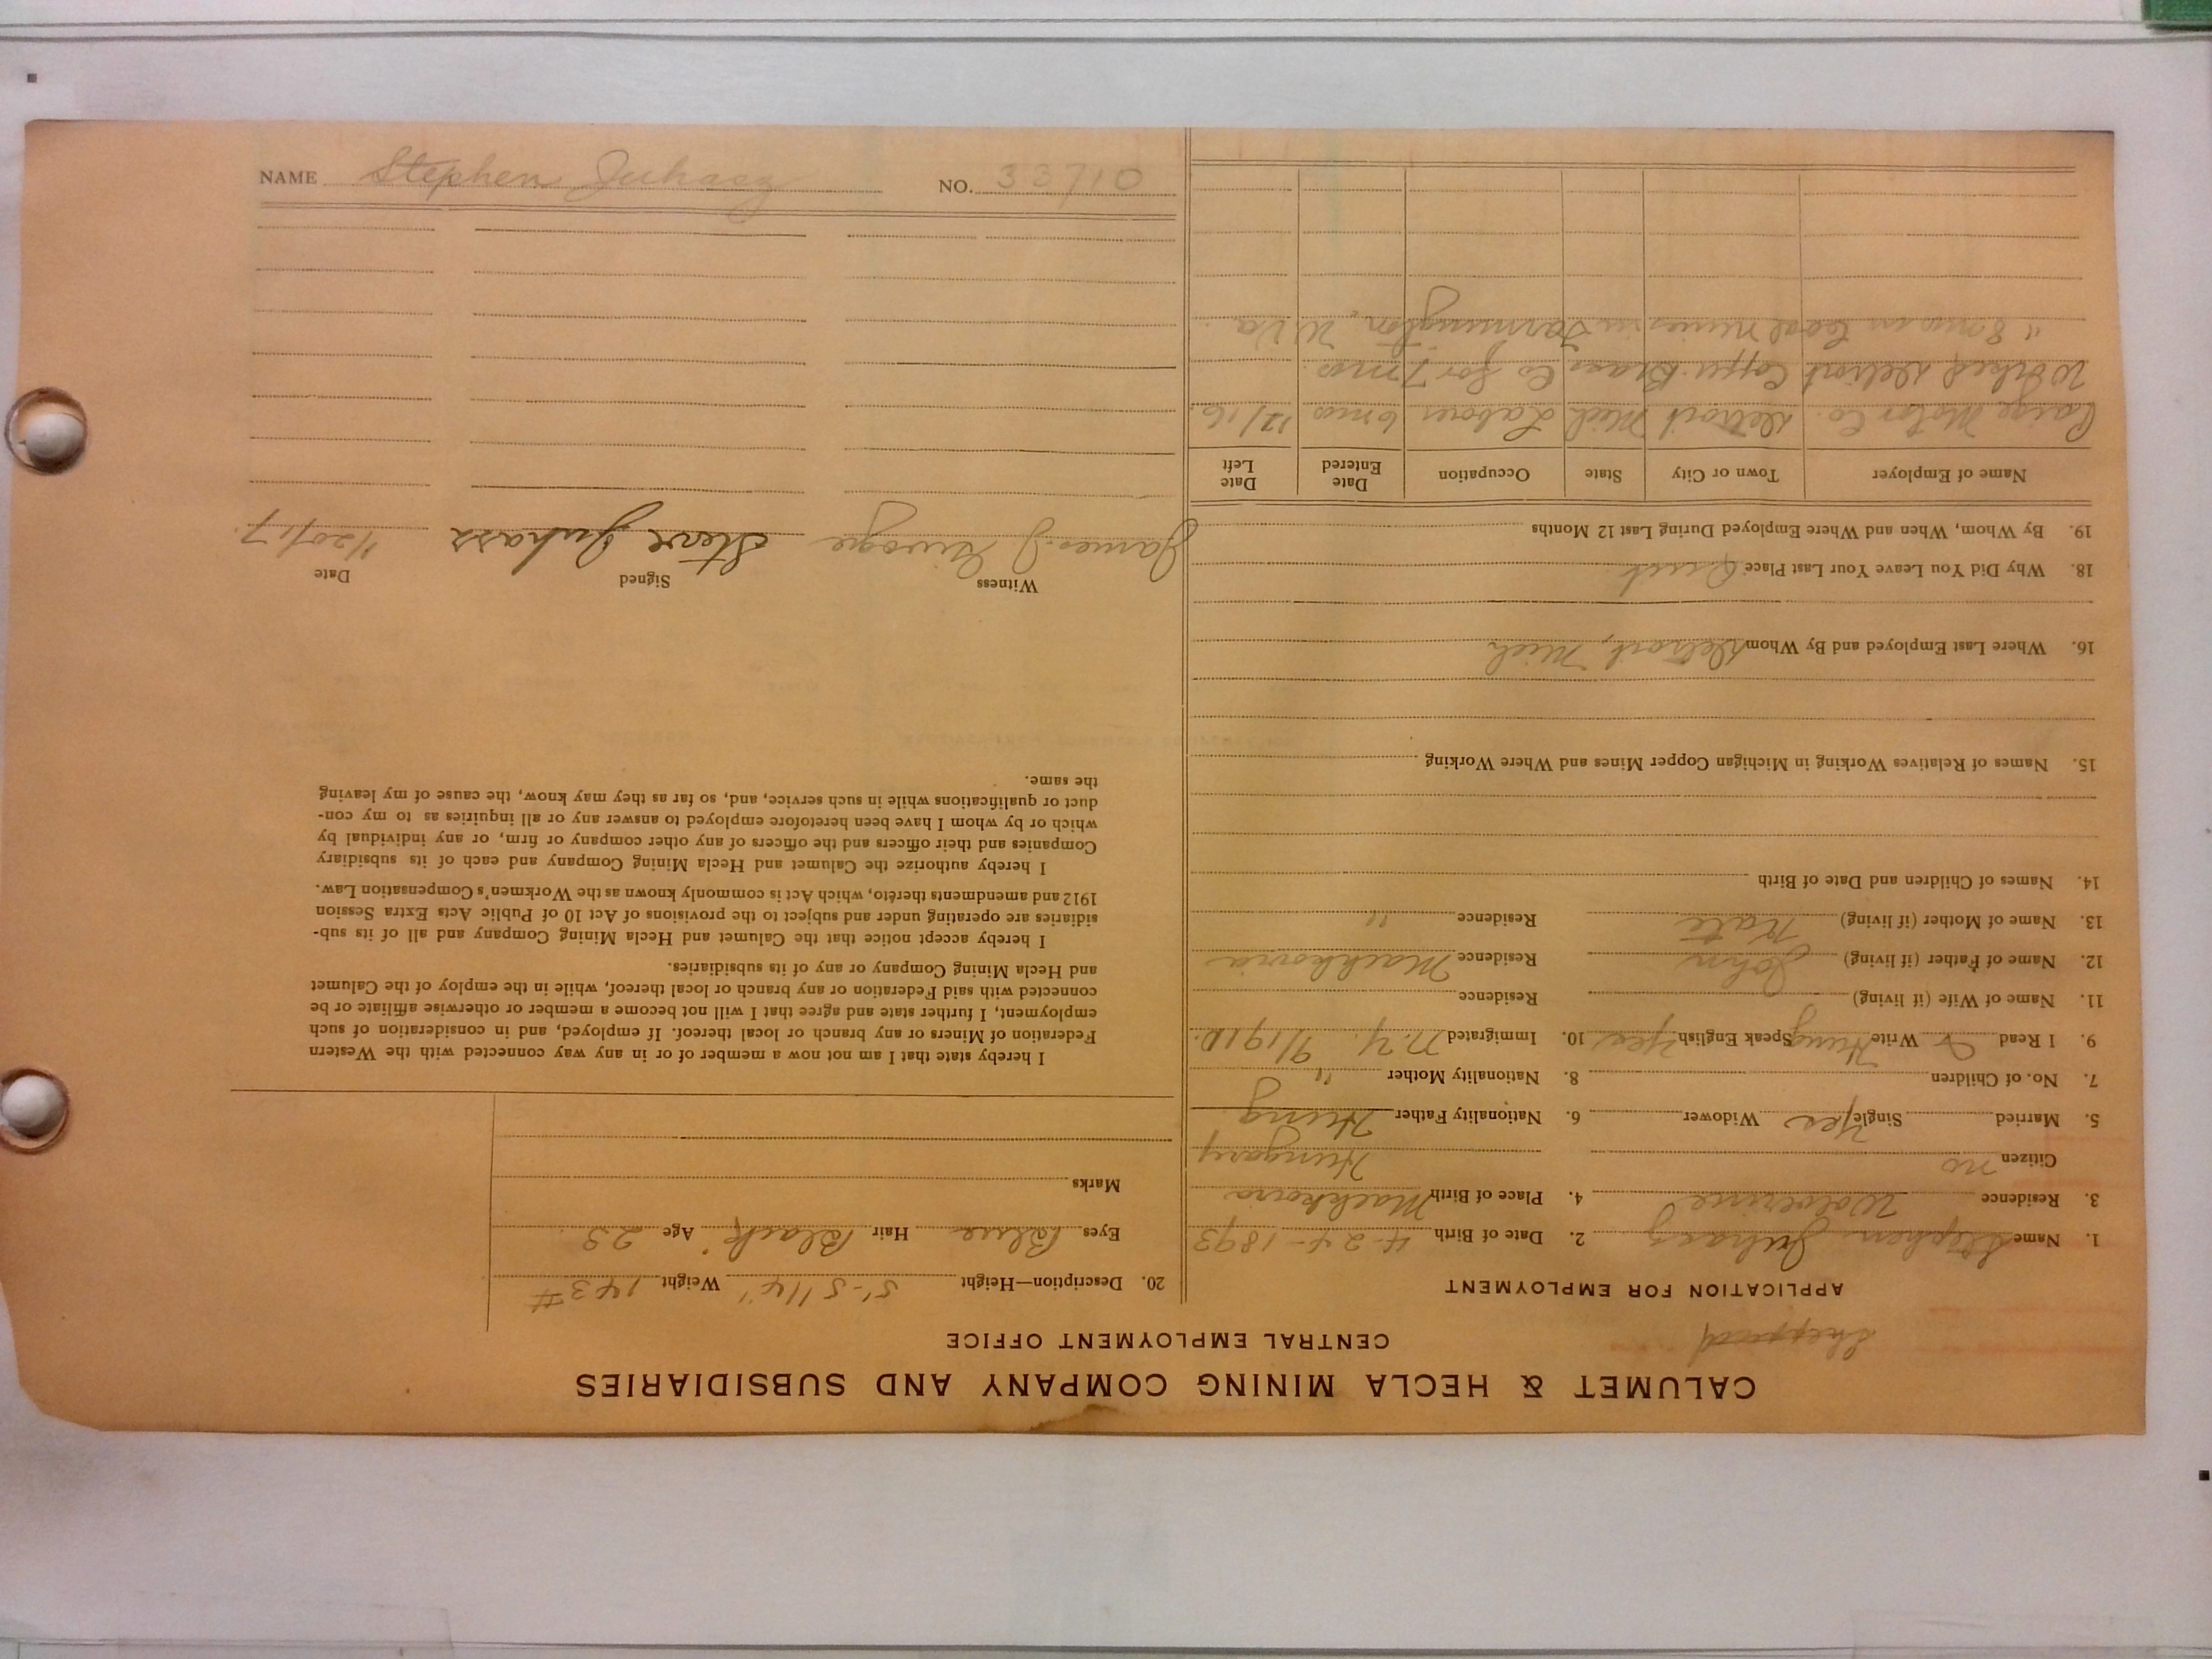 CALUMET & HECLA MINING COMPANY AND SUBSIDIARIES
CENTRAL EMPLOYMENT OFFICE
APPLICATION FOR EMPLOYMENT
1. Name Stephen Juhasz 2. Date of Birth 4-24-1893
3. Residence Wolverine 4. Place of Birth
Citizen no Hungary
5. Married Single Yes Widower 6. Nationality Father Hung
7. No. of Children 8. Nationality Mother "
9. I Read & Write Hung Speak English Yes 10. Immigrated N.Y. 9/1910.
11. Name of Wife (if living) Residence
12. Name of Father (if living) John Residence
13. Name of Mother (if living) Kate Residence "
14. Names of Children and Date of Birth
15. Names of Relatives Working in Michigan Copper Mines and Where Working
16. Where Last Employed and By Whom Detroit, Mich
18. Why Did You Leave Your Last Place Quit
19. By Whom, When and Where Employed During Last 12 Months
Name of Employer Town or City State Occupation Date Entered Date Left
Paige Motor Co. Detroit Mich Laborer 6 mos 12/16.
Worked Detroit Copper Brass Co for 7 mos.
" 8 mos in Coal mines in Farmington, W Va.
20. Description—Height 5'-5 1/4" Weight 143 #
Eyes Blue Hair Black Age 23
Marks
I hereby state that I am not now a member of or in any way connected with the Western
Federation of Miners or any branch or local thereof. If employed, and in consideration of such
employment, I further state and agree that I will not become a member or otherwise affiliate or be
connected with said Federation or any branch or local thereof, while in the employ of the Calumet
and Hecla Mining Company or any of its subsidiaries.
I hereby accept notice that the Calumet and Hecla Mining Company and all of its sub-
sidiaries are operating under and subject to the provisions of Act 10 of Public Acts Extra Session
1912 and amendments thereto, which Act is commonly known as the Workmen's Compensation Law.
I hereby authorize the Calumet and Hecla Mining Company and each of its subsidiary
Companies and their officers and the officers of any other company or firm, or any individual by
which or by whom I have been heretofore employed to answer any or all inquiries as to my con-
duct or qualifications while in such service, and, so far as they may know, the cause of my leaving
the same.
Witness Signed Date
James J. Steve Juhass 1/20/17.
NAME Stephen Juhasz NO. 33710